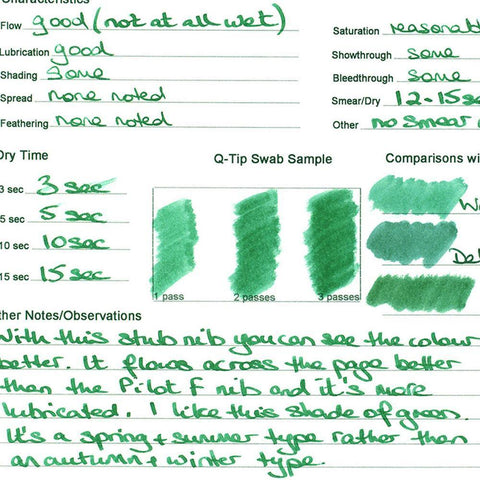 Characteristics
Flow good (not at all wet)
Lubrication good
Shading Some
Spread none noted
Feathering none noted
Saturation reasonabl
Showthrough some
Bleedthrough some
Smear/Dry 12-15se
Other no smear
Dry Time
3 sec 3 sec
5 sec 5 sec
10 sec 10 sec
15 sec 15 sec
Q-Tip Swab Sample
1 pass
2 passes
3 passes
Comparisons wi
W
De
ther Notes/Observations
With this stub nib you can see the colour
better. It flows across the page better
than the Pilot F nib and it's more
lubricated. I like this shade of green.
It's a spring + summer type rather than
an autumn + winter type.